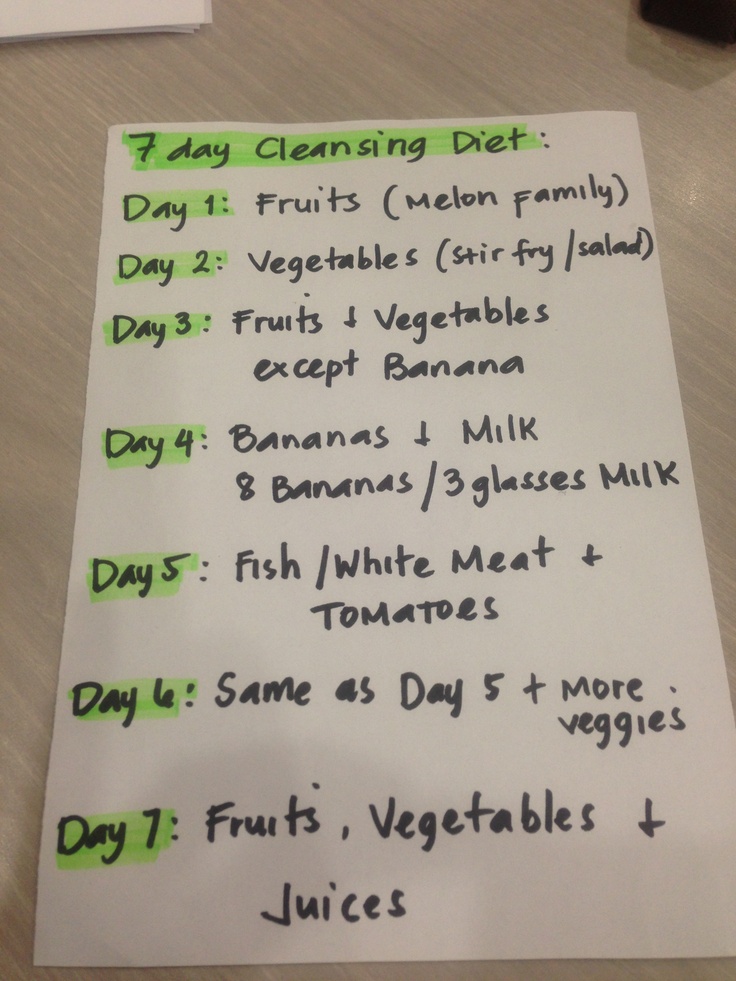 7 day Cleansing Diet:
Day 1: Fruits (Melon Family)
Day 2: Vegetables (stir fry/salad)
Day 3: Fruits + Vegetables
except Banana
Day 4: Bananas + Milk
8 Bananas/3 glasses Milk
Day 5: Fish/White Meat +
TOMATOES
Day 6: Same as Day 5 + More
veggies
Day 7: Fruits, Vegetables +
Juices